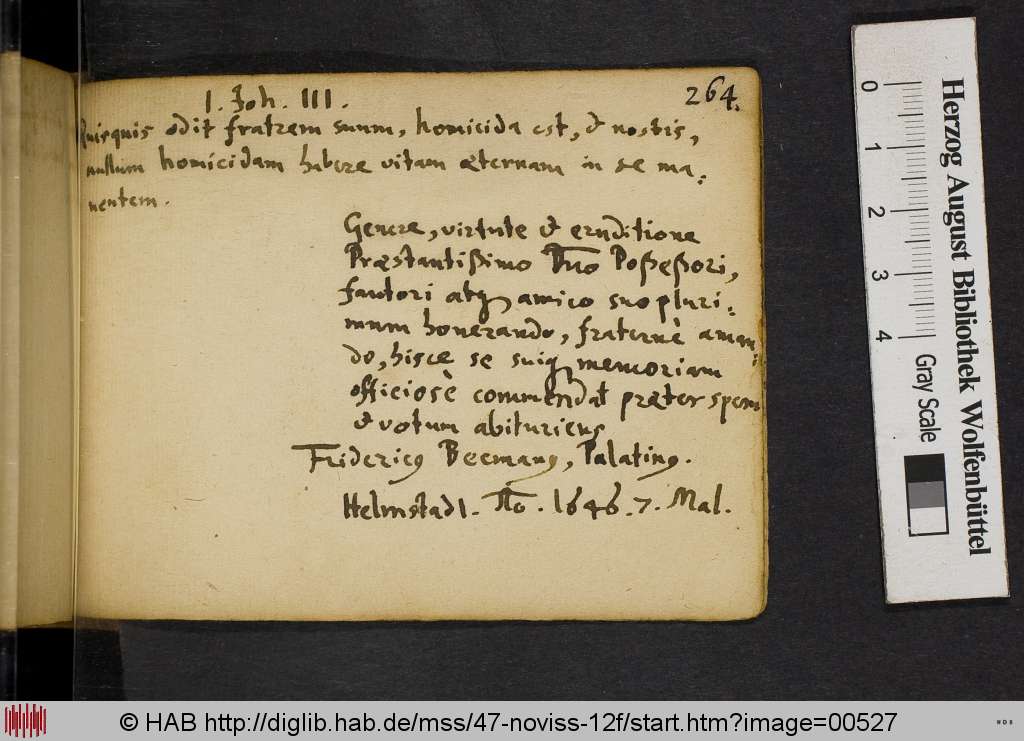 264.
1. Joh. III.
Quisquis odit fratrem suum, homicida est, & nostis,
nullum homicidam habere vitam æternam in se ma:
nentem.
Genere, virtute & eruditione
Præstantißimo Dno Poßeßori,
fautori atq amico suo pluri:
mum honorando, fraternè aman:
do, hisce se suiq memoriam
officiosè commendat præter spem
& votum abituriens
Fridericus Becmanus, Palatinus.
Helmstadl. Ao. 1646. 7. Mai.
Herzog August Bibliothek Wolfenbüttel
0 1 2 3 4
Gray Scale
© HAB http://diglib.hab.de/mss/47-noviss-12f/start.htm?image=00527
WDB